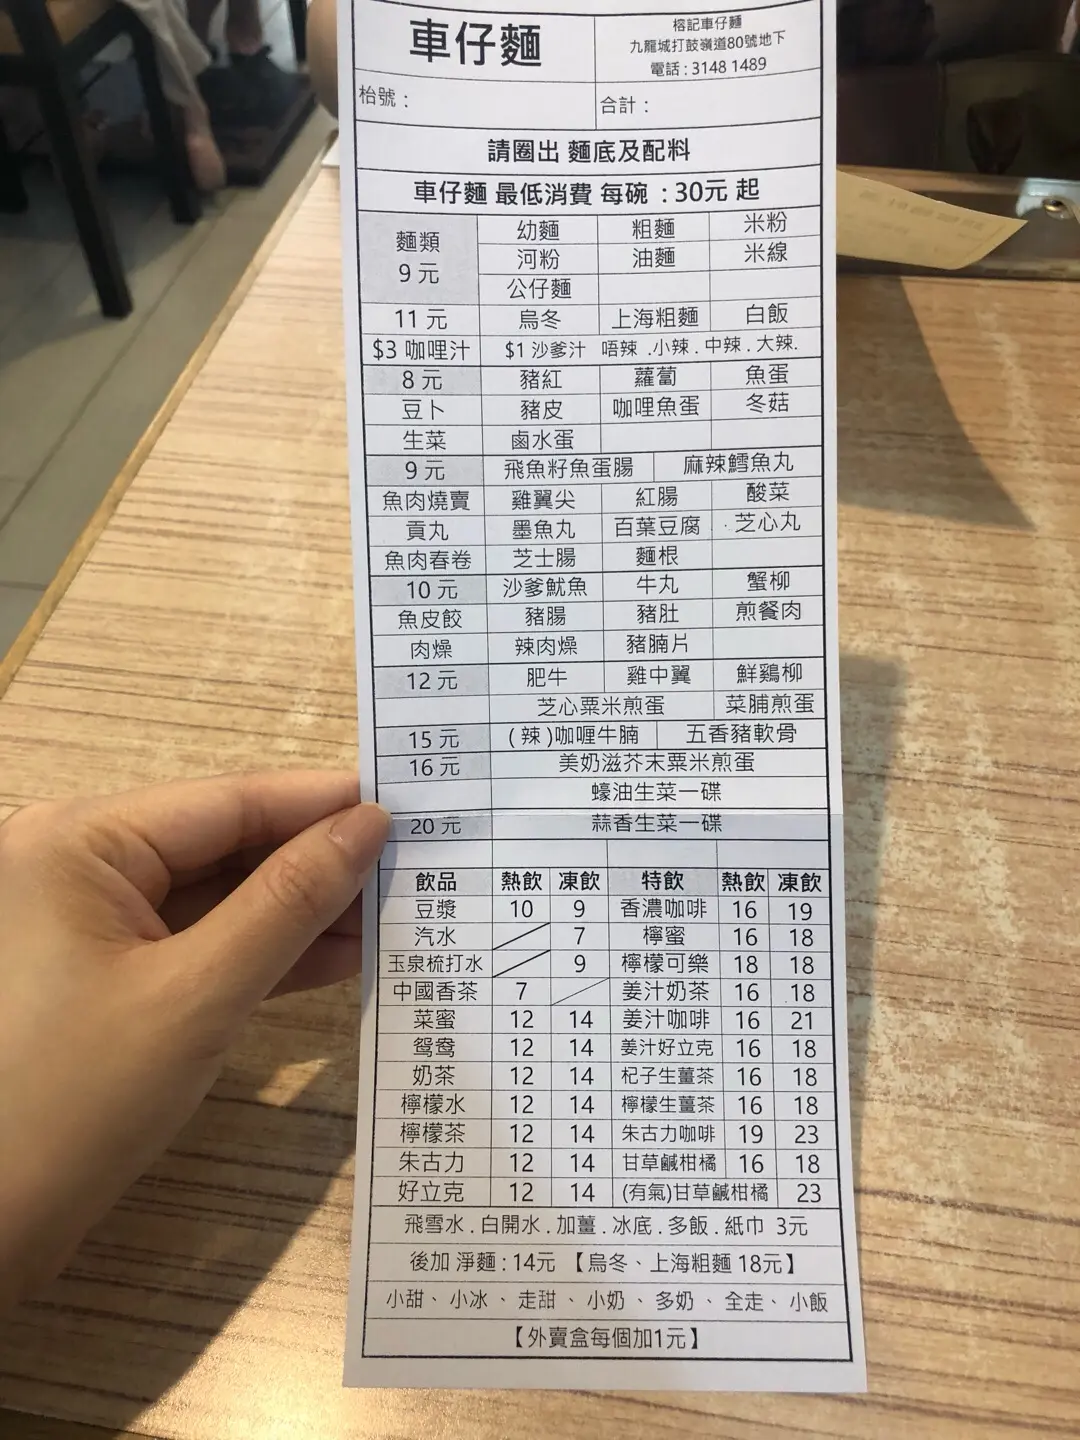 車仔麵
榕記車仔麵
九龍城打鼓嶺道80號地下
電話 : 3148 1489
枱號 :
合計 :
請圈出 麵底及配料
車仔麵 最低消費 每碗 : 30元 起
麵類 9 元 幼麵 粗麵 米粉
河粉 油麵 米線
公仔麵
11 元 烏冬 上海粗麵 白飯
$3 咖哩汁 $1 沙爹汁 唔辣 .小辣 . 中辣 . 大辣.
8 元 豬紅 蘿蔔 魚蛋
豆卜 豬皮 咖哩魚蛋 冬菇
生菜 鹵水蛋
9 元 飛魚籽魚蛋腸 麻辣鱈魚丸
魚肉燒賣 雞翼尖 紅腸 酸菜
貢丸 墨魚丸 百葉豆腐 芝心丸
魚肉春卷 芝士腸 麵根
10 元 沙爹魷魚 牛丸 蟹柳
魚皮餃 豬腸 豬肚 煎餐肉
肉燥 辣肉燥 豬腩片
12 元 肥牛 雞中翼 鮮鷄柳
芝心粟米煎蛋 菜脯煎蛋
15 元 (辣)咖喱牛腩 五香豬軟骨
16 元 美奶滋芥末粟米煎蛋
蠔油生菜一碟
20 元 蒜香生菜一碟
飲品 熱飲 凍飲 特飲 熱飲 凍飲
豆漿 10 9 香濃咖啡 16 19
汽水 7 檸蜜 16 18
玉泉梳打水 9 檸檬可樂 18 18
中國香茶 7 姜汁奶茶 16 18
菜蜜 12 14 姜汁咖啡 16 21
鴛鴦 12 14 姜汁好立克 16 18
奶茶 12 14 杞子生薑茶 16 18
檸檬水 12 14 檸檬生薑茶 16 18
檸檬茶 12 14 朱古力咖啡 19 23
朱古力 12 14 甘草鹹柑橘 16 18
好立克 12 14 (有氣)甘草鹹柑橘 23
飛雪水 . 白開水 . 加薑 . 冰底 . 多飯 . 紙巾 3元
後加 淨麵 : 14元 【烏冬、上海粗麵 18元】
小甜、 小冰 、 走甜 、 小奶 、 多奶 、 全走 、 小飯
【外賣盒每個加1元】